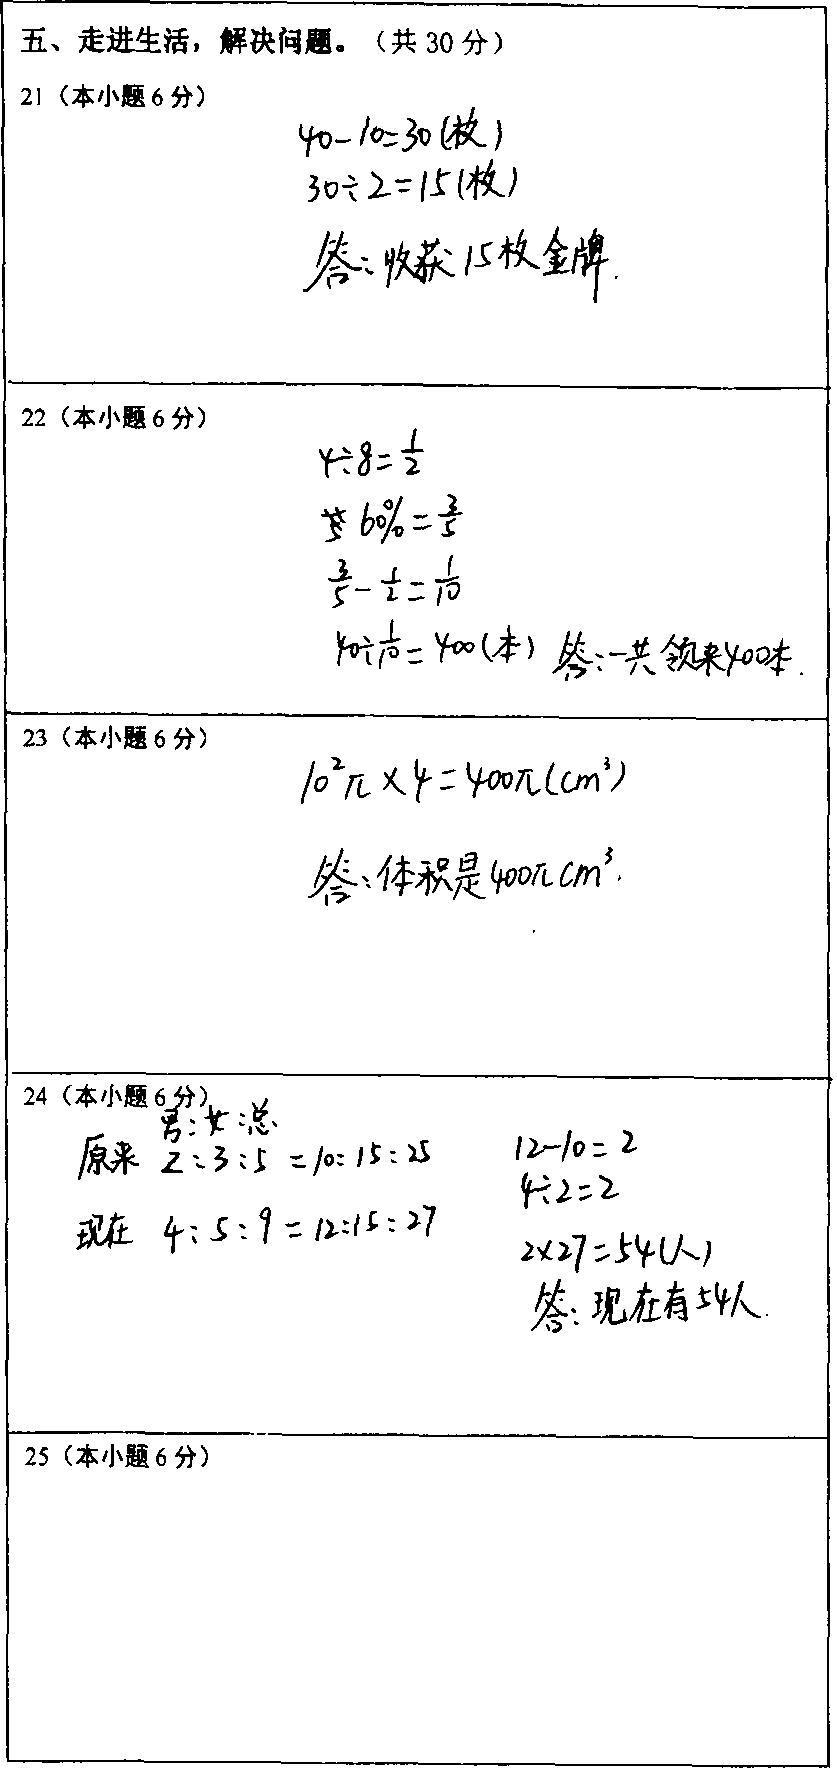 五、走进生活，解决问题。（共 30 分）
21（本小题 6 分）
40-10=30(枚)
30÷2=15(枚)
答:收获15枚金牌.
22（本小题 6 分）
4÷8=1/2
60%=3/5
3/5-1/2=1/10
40÷1/10=400(本) 答:一共领来400本.
23（本小题 6 分）
10²π×4=400π(cm³)
答:体积是400πcm³.
24（本小题 6 分）
男:女:总
原来 2:3:5=10:15:25
现在 4:5:9=12:15:27
12-10=2
4÷2=2
2×27=54(人)
答:现在有54人.
25（本小题 6 分）